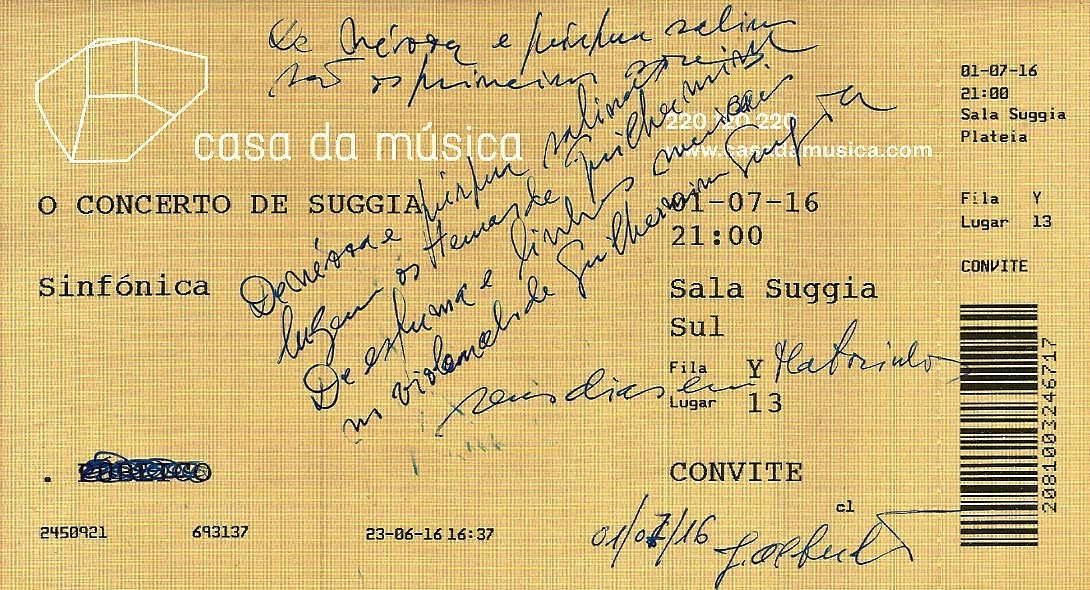 De névoa e púrpura salina
são os primeiros
casa da música
220 120 220
www.casadamusica.com
O CONCERTO DE SUGGIA
Sinfónica
De névoa e púrpura salina
os de Guilhermina
De espuma e linhos
no violoncelo de Guilhermina Suggia
seus dias em Matosinhos
01-07-16
21:00
Sala Suggia
Sul
Fila Y
Lugar 13
CONVITE
. PÚBLICO
cl
2450921 693137 23-06-16 16:37
01/07/16
01-07-16
21:00
Sala Suggia
Plateia
Fila Y
Lugar 13
CONVITE
2081003246717